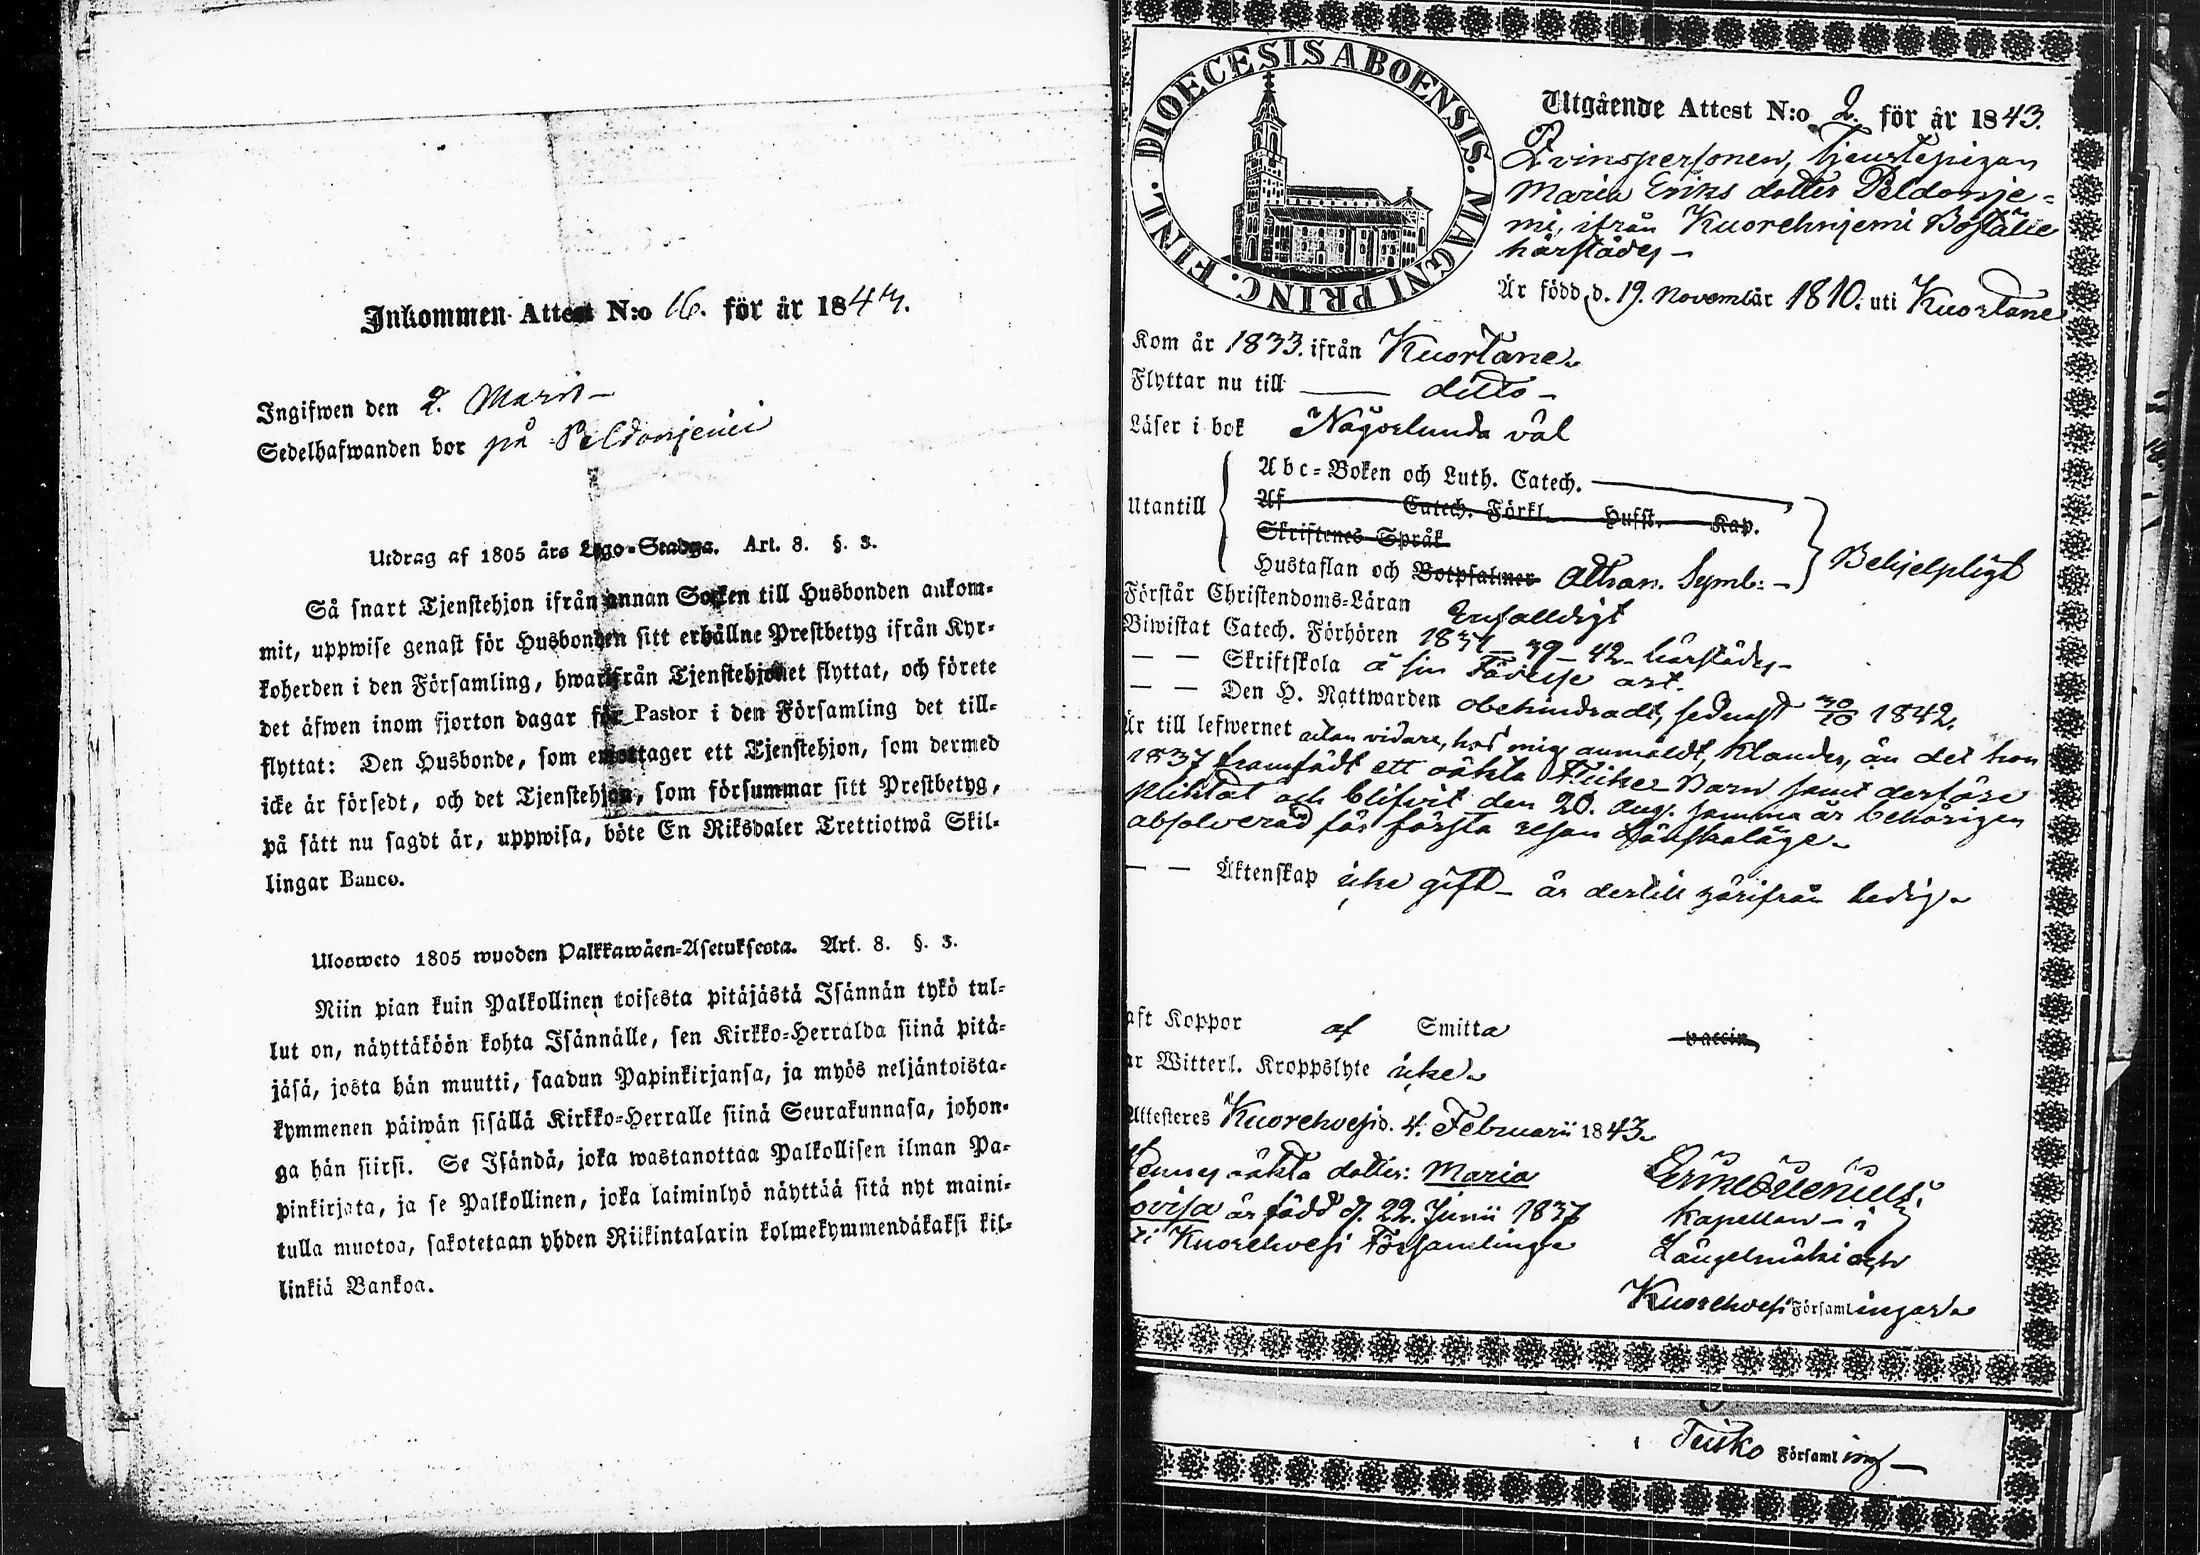 Inkommen Attest N:o 16. för år 1843.
Ingifwen den 2. Martii –
Sedelhafwanden bor på Peldonjemi
Utdrag af 1805 års Lego-Stadga. Art. 8. §. 3.
Så snart Tjenstehjon ifrån annan Socken till Husbonden ankom-
mit, uppwise genast för Husbonden sitt erhållne Prestbetyg ifrån Kyr-
koherden i den Församling, hwarifrån Tjenstehjonet flyttat, och förete
det äfwen inom fjorton dagar för Pastor i den Församling det till-
flyttat: Den Husbonde, som emottager ett Tjenstehjon, som dermed
icke är försedt, och det Tjenstehjon, som försummar sitt Prestbetyg,
på sätt nu sagdt är, uppwisa, böte En Riksdaler Trettiotwå Skil-
lingar Banco.
Ulosweto 1805 wuoden Palkkawäen-Asetuksesta. Art. 8. §. 3.
Niin pian kuin Palkollinen toisesta pitäjästä Isännän tykö tul-
lut on, näyttäköön kohta Isännälle, sen Kirkko-Herralda siinä pitä-
jäsä, josta hän muutti, saadun Papinkirjansa, ja myös neljäntoista-
kymmenen päiwän sisällä Kirkko-Herralle siinä Seurakunnasa, johon-
ga hän siirsi. Se Isändä, joka wastanottaa Palkollisen ilman Pa-
pinkirjata, ja se Palkollinen, joka laiminlyö näyttää sitä nyt maini-
tulla muotoa, sakotetaan yhden Riikintalarin kolmekymmendäkaksi kil-
linkiä Bankoa.
DIOECESIS ABOENSIS. MAGNI PRINC. FINL.
Utgående Attest N:o 2. för år 1843.
Qvinspersonen, Tjenstepigan
Maria Eriks dotter Peldonje-
mi, ifrån Kuorehnjemi Boställe
härstädes –
Är född d. 19. November 1810. uti Kuortane
Kom år 1833. ifrån Kuortane.
Flyttar nu till — ditto –
Läser i bok Någorlunda väl
Utantill
Abc-Boken och Luth. Catech.
Af Catech. Förkl. Hufst. Kap.
Skriftenes Språk
Hustaflan och Botpsalmer Athan. Symb: –
Behjelpligt
Förstår Christendoms-Läran Enfalldigt
Biwistat Catech. Förhören 1837 – 39 – 42 – härstädes –
— — Skriftskola å sin Födelse ort.
— — Den H. Nattwarden obehindradt, sednast 30/10 1842.
Är till lefwernet utan vidare, hos mig anmäldt, klander, än det hon
1837 framfödt ett oäkta Flicke Barn samt derföre
pliktat och blifvit den 20. Aug. samma år behörigen
absolverad för första resan Lönskaläge –
— — Äktenskap icke gift – är dertill härifrån ledig –
aft Koppor af Smitta vaccin
ar Witterl. Kroppslyte icke –
Attesteres Kuorehvesi d. 4. Februarii 1843.
Hennes oäkta dotter: Maria
ovisa är född d. 22. Junii 1837
ti Kuorehvesi Församling –
Kapellan – i
Längelmäki och
Kuorehvesi Församlingar –
i Teisko Församling –